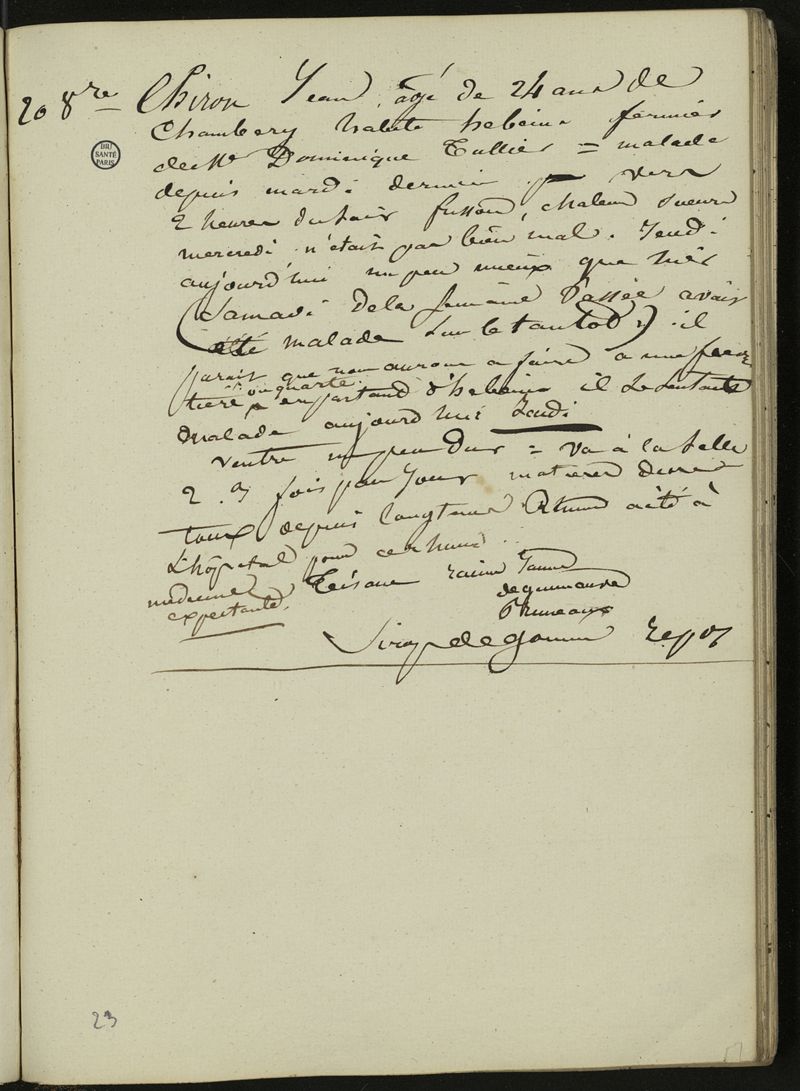 20 8bre Chiron Jean, âgé de 24 ans de
Chambery habite hebeins fermier
de Mr Dominique Tullier = malade
depuis mardi dernier vers
2 heures du soir frisson, chaleur sueurs
mercredi n'était pas bien mal. Jeudi
aujourd'hui un peu mieux que hier
(Samedi de la semaine Passée avoir
été malade sur le tantot) il
parait que nous aurons a faire a une fievre
tierce ou quarte. en partant d'hebeins il se sentait
malade aujourd'hui Jeudi
ventre un peu dur = va à la selle
2 . 3 fois par jour matieres dures
toux depuis longtems Rhume a été à
L'hôpital pour ce rhume .
medecine expectante.
Teisane racine Jaune
de guimauve
Pruneaux
Sirop de gomme repos
BIU
SANTÉ
PARIS
23